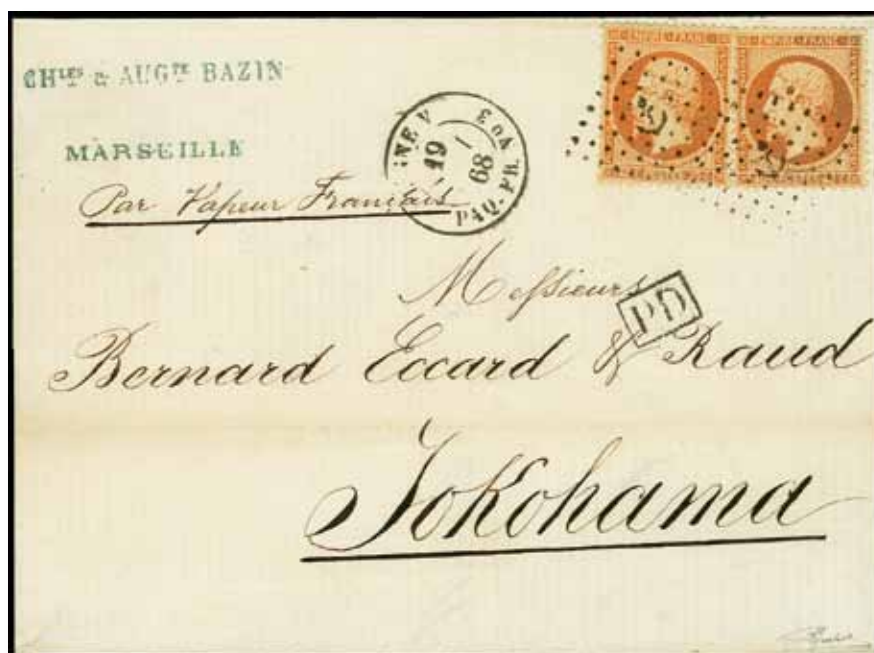 CHLES & AUGTE BAZIN
MARSEILLE
Par Vapeur Français
19
68
PAQ. FR.
EMPIRE FRANC
EMPIRE FRANC
Messieurs
PD
Bernard Eccard & Raud
Yokohama